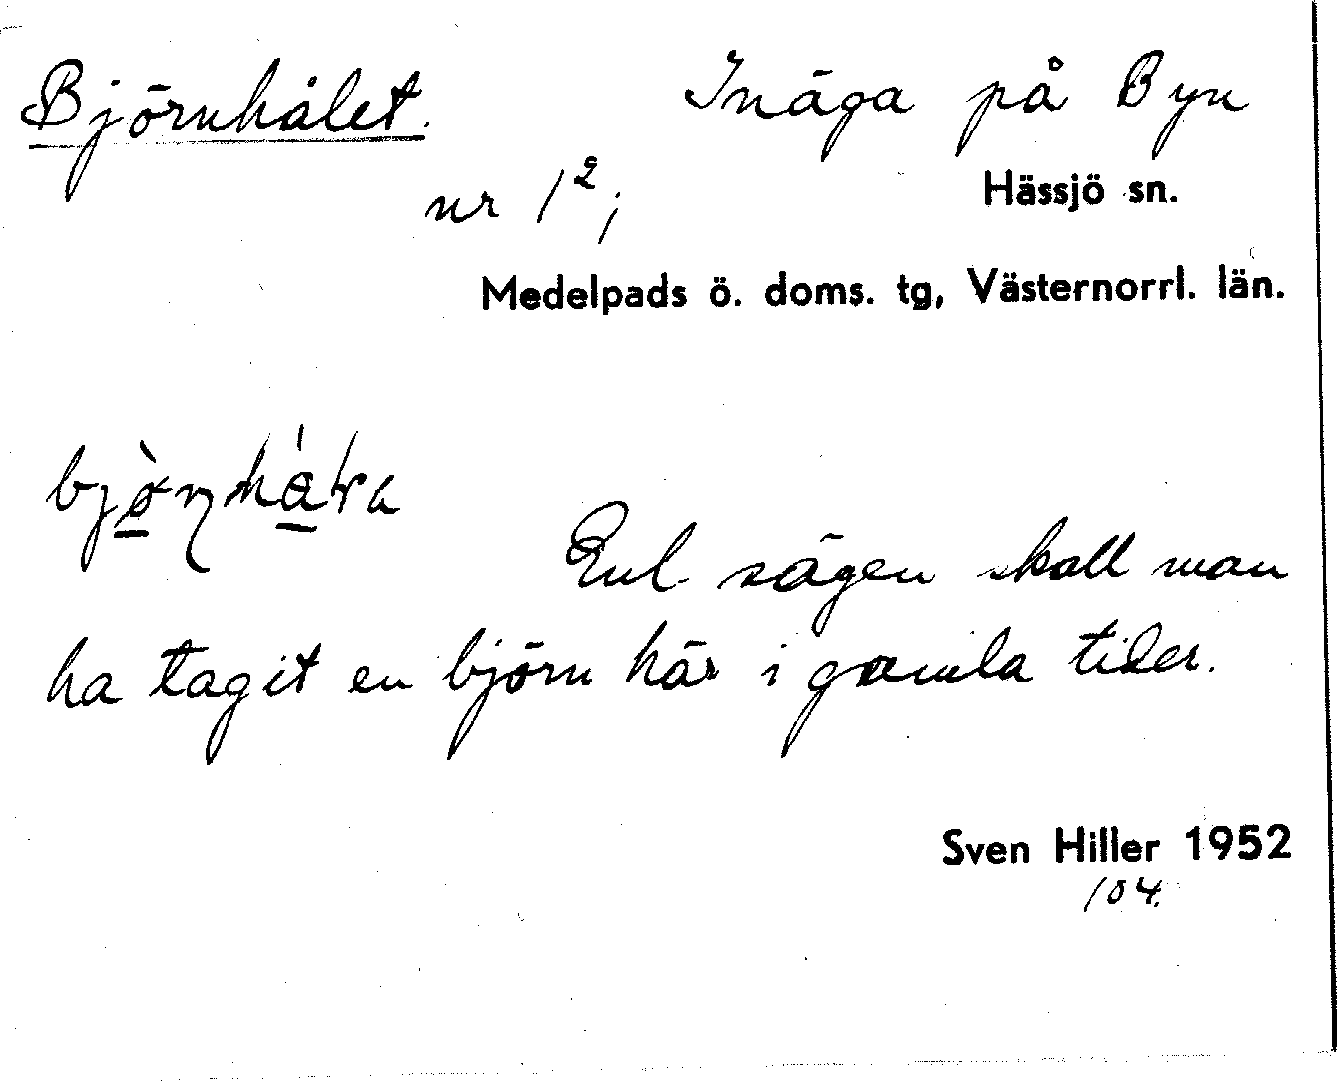 Björnhålet. Inäga på Byn
nr 1²;
Hässjö sn.
Medelpads ö. doms. tg, Västernorrl. län.
Enl. sägen skall man
ha tagit en björn här i gamla tider.
Sven Hiller 1952
104.